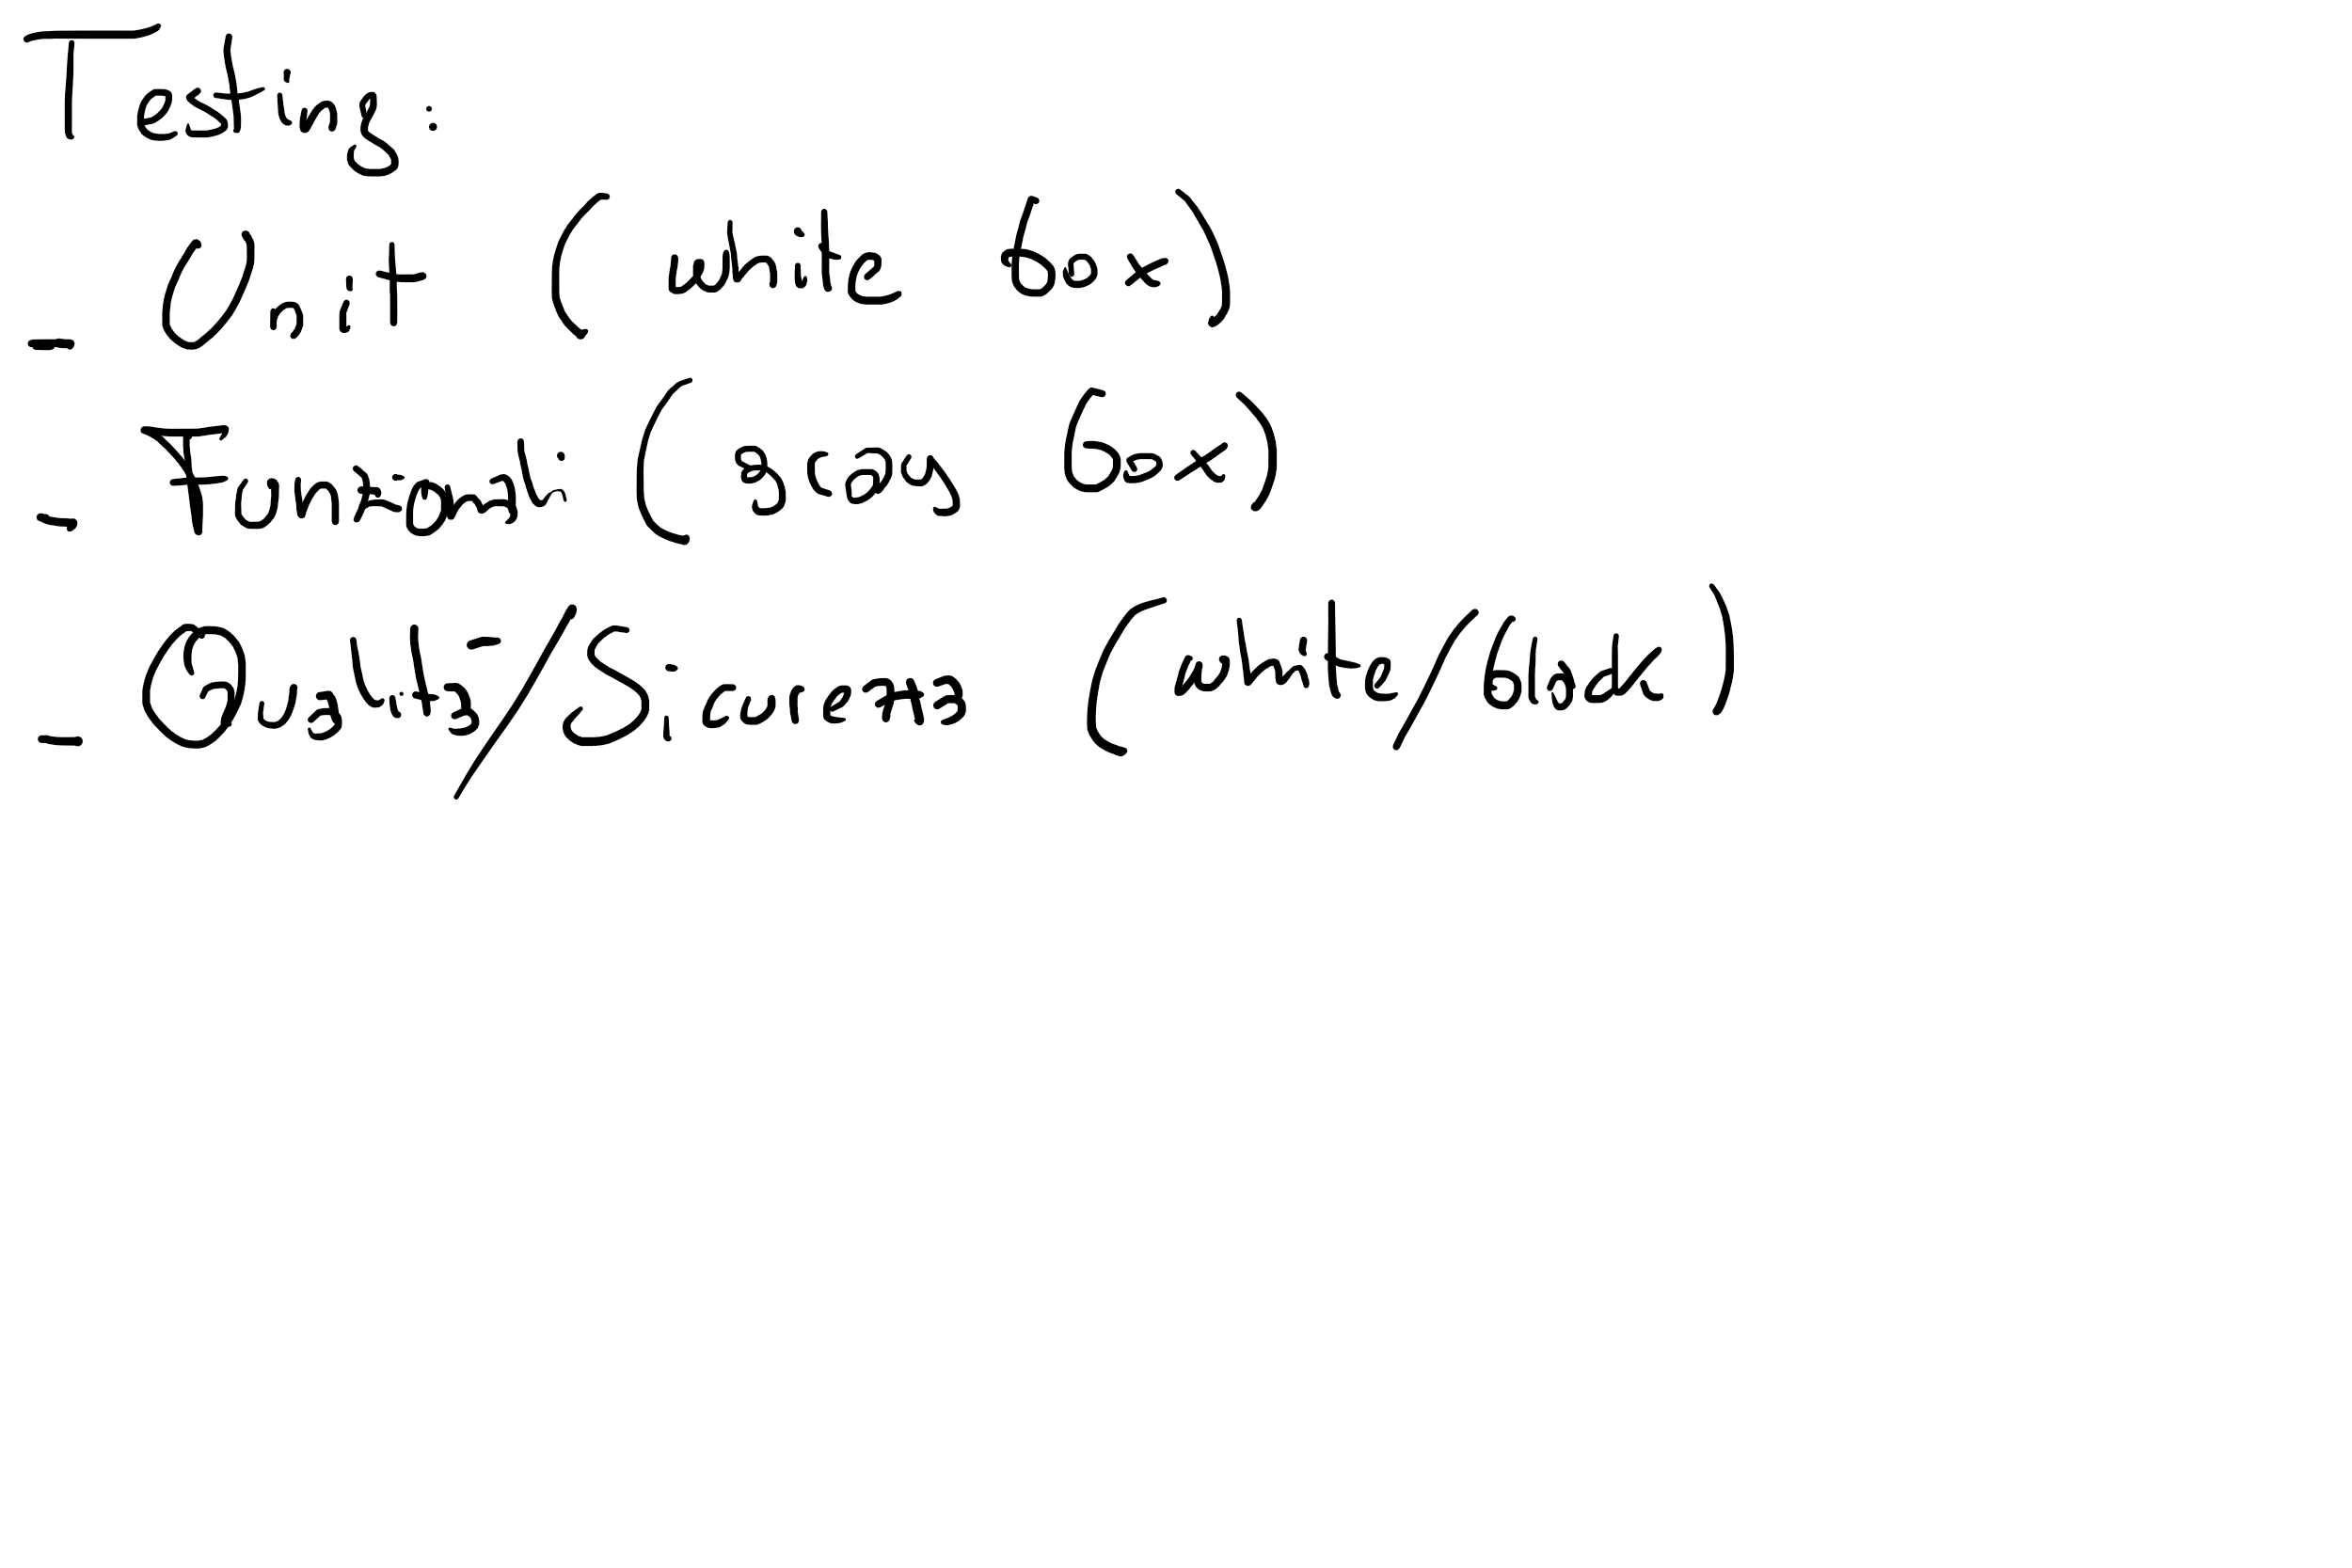 Testing:
- Unit (white box)
- Funzionali (gray box)
- Qualità/Sicurezza (white/black)